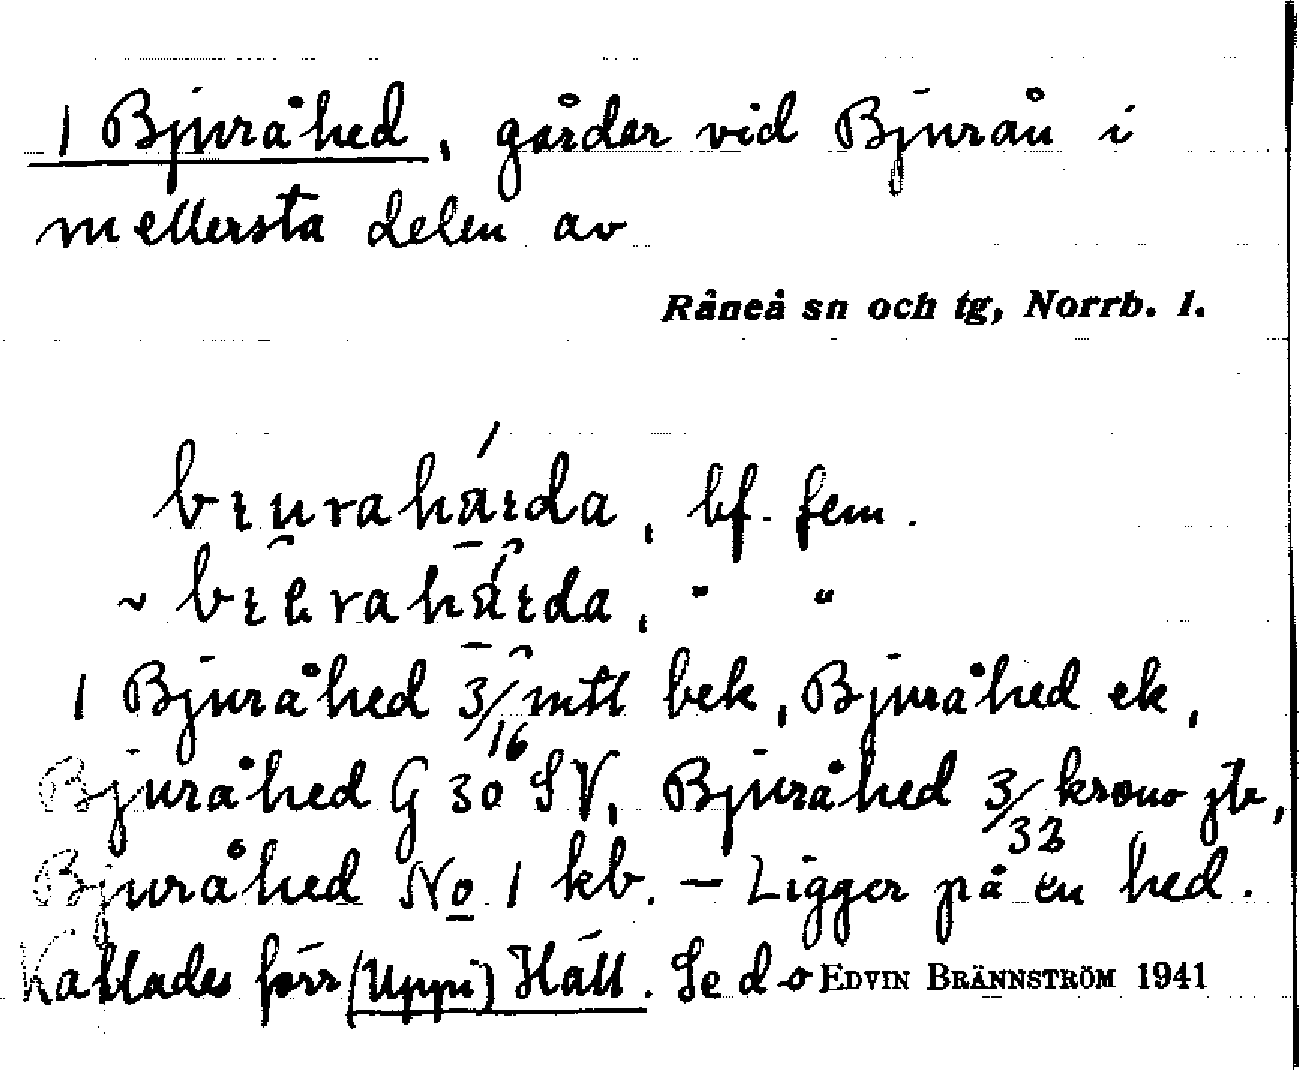 1 Bjuråhed, gårdar vid Bjurån i
mellersta delen av
Råneå sn och tg, Norrb. l.
bɩurahárda, bf. fem.
~ bɩʉrahárda, " "
1 Bjuråhed 3/16 mtl bek, Bjuråhed ek,
Bjuråhed G 30 SV, Bjuråhed 3/32 krono jb,
Bjuråhed No 1 kb. – Ligger på en hed.
Kallades förr (Uppi) Häll. Se d o EDVIN BRÄNNSTRÖM 1941